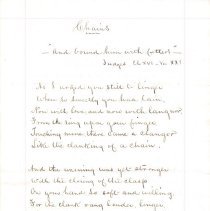 Chains
"And bound him with fetters" -
Judges Ch XVI - Vs XXI
As I urged you still to linger
When so sweetly you had lain,
Now with love and now with languor,
From the ring upon your finger
Touching mine, there came a clangor
Like the clanking of a chain.
And the meaning was yet stronger
With the closing of the clasp
On your hand so soft and willing
For the clank rang louder, longer,